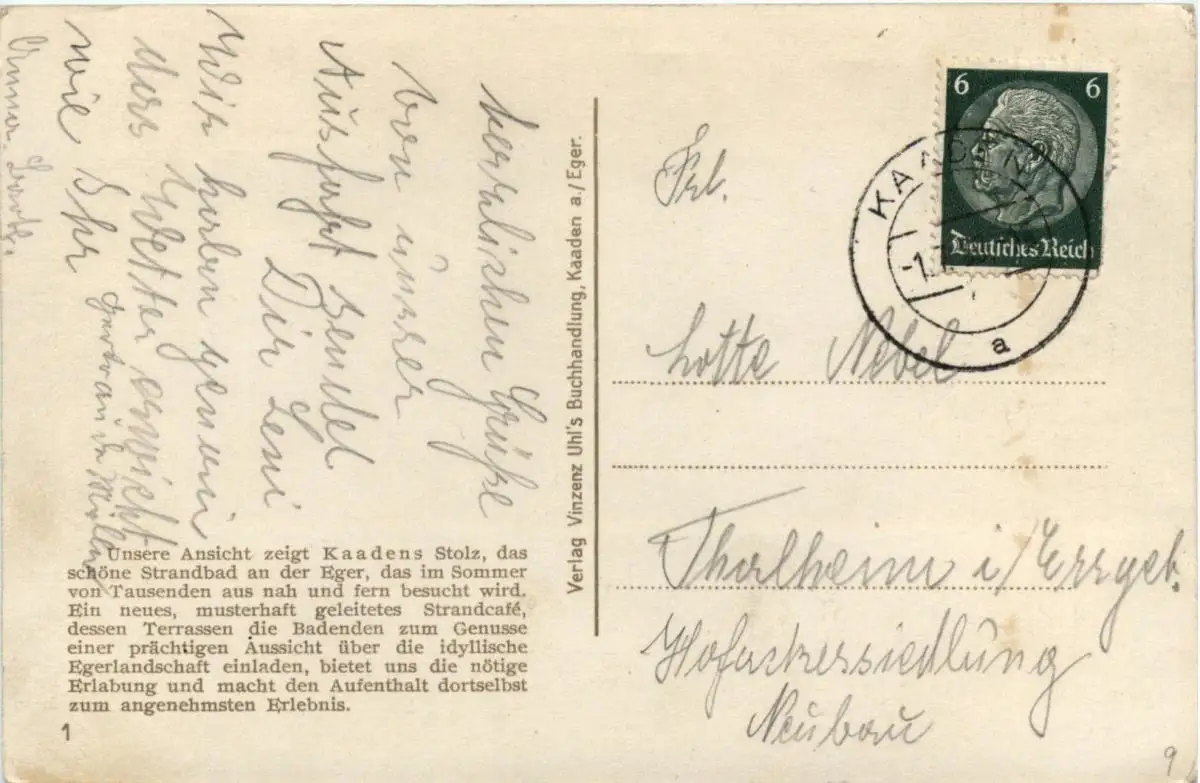 herzlichen Grüße
von unser
Ausfahrt sendet
Dir Leni
Wir haben genau
das Wetter erwischt
wie Ihr
Unsere Ansicht zeigt Kaadens Stolz, das
schöne Strandbad an der Eger, das im Sommer
von Tausenden aus nah und fern besucht wird.
Ein neues, musterhaft geleitetes Strandcafé,
dessen Terrassen die Badenden zum Genusse
einer prächtigen Aussicht über die idyllische
Egerlandschaft einladen, bietet uns die nötige
Erlabung und macht den Aufenthalt dortselbst
zum angenehmsten Erlebnis.
1
Verlag Vinzenz Uhl's Buchhandlung, Kaaden a./Eger.
6 6
Deutsches Reich
KAADEN
-1.
a
Frl.
Lotte Nebel
Thalheim i/Erzgeb.
Hofackersiedlung
Neubau
9